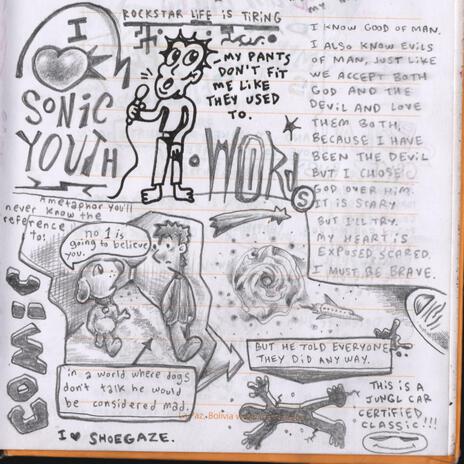 ROCKSTAR LIFE IS TIRING
I
SONIC
YOUTH
MY PANTS
DON'T FIT
ME LIKE
THEY USED
TO.
WORD
S
I KNOW GOOD OF MAN.
I ALSO KNOW EVILS
OF MAN, JUST LIKE
WE ACCEPT BOTH
GOD AND THE
DEVIL AND LOVE
THEM BOTH,
BECAUSE I HAVE
BEEN THE DEVIL
BUT I CHOSE
GOD OVER HIM.
IT IS SCARY
BUT I'LL TRY.
MY HEART IS
EXPOSED, SCARED.
I MUST BE BRAVE.
A metaphor you'll
never know the
reference
to!
no 1 is
going to believe
you.
COMIC
in a world where dogs
don't talk he would
be considered mad.
BUT HE TOLD EVERYONE
THEY DID ANY WAY.
THIS IS A
JUNGL CAR
CERTIFIED
CLASSIC!!!
az, Bolivia
I ♥ SHOEGAZE.